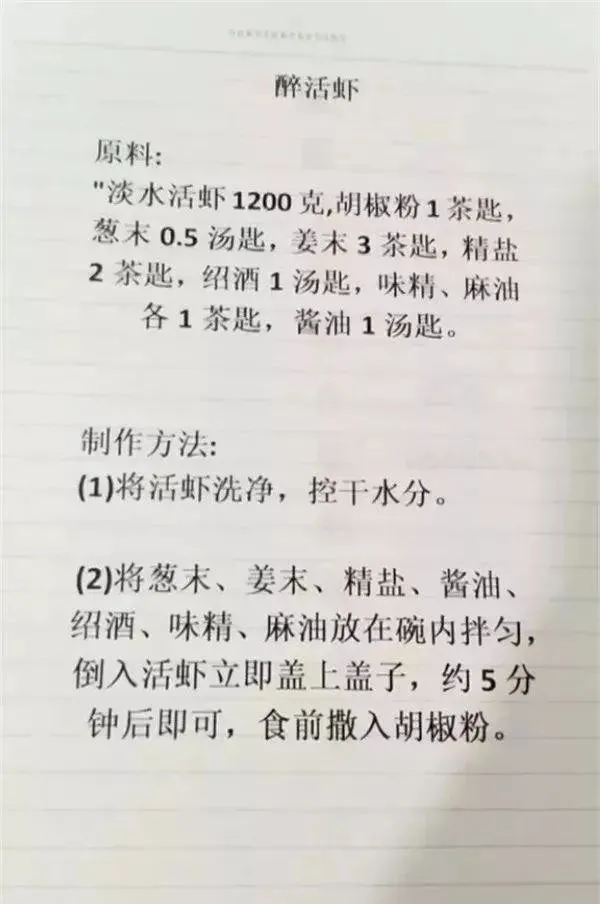 醉活虾
原料:
"淡水活虾1200克,胡椒粉1茶匙，
葱末0.5汤匙，姜末3茶匙，精盐
2茶匙，绍酒1汤匙，味精、麻油
各1茶匙，酱油1汤匙。
制作方法:
(1)将活虾洗净，控干水分。
(2)将葱末、姜末、精盐、酱油、
绍酒、味精、麻油放在碗内拌匀，
倒入活虾立即盖上盖子，约5分
钟后即可，食前撒入胡椒粉。